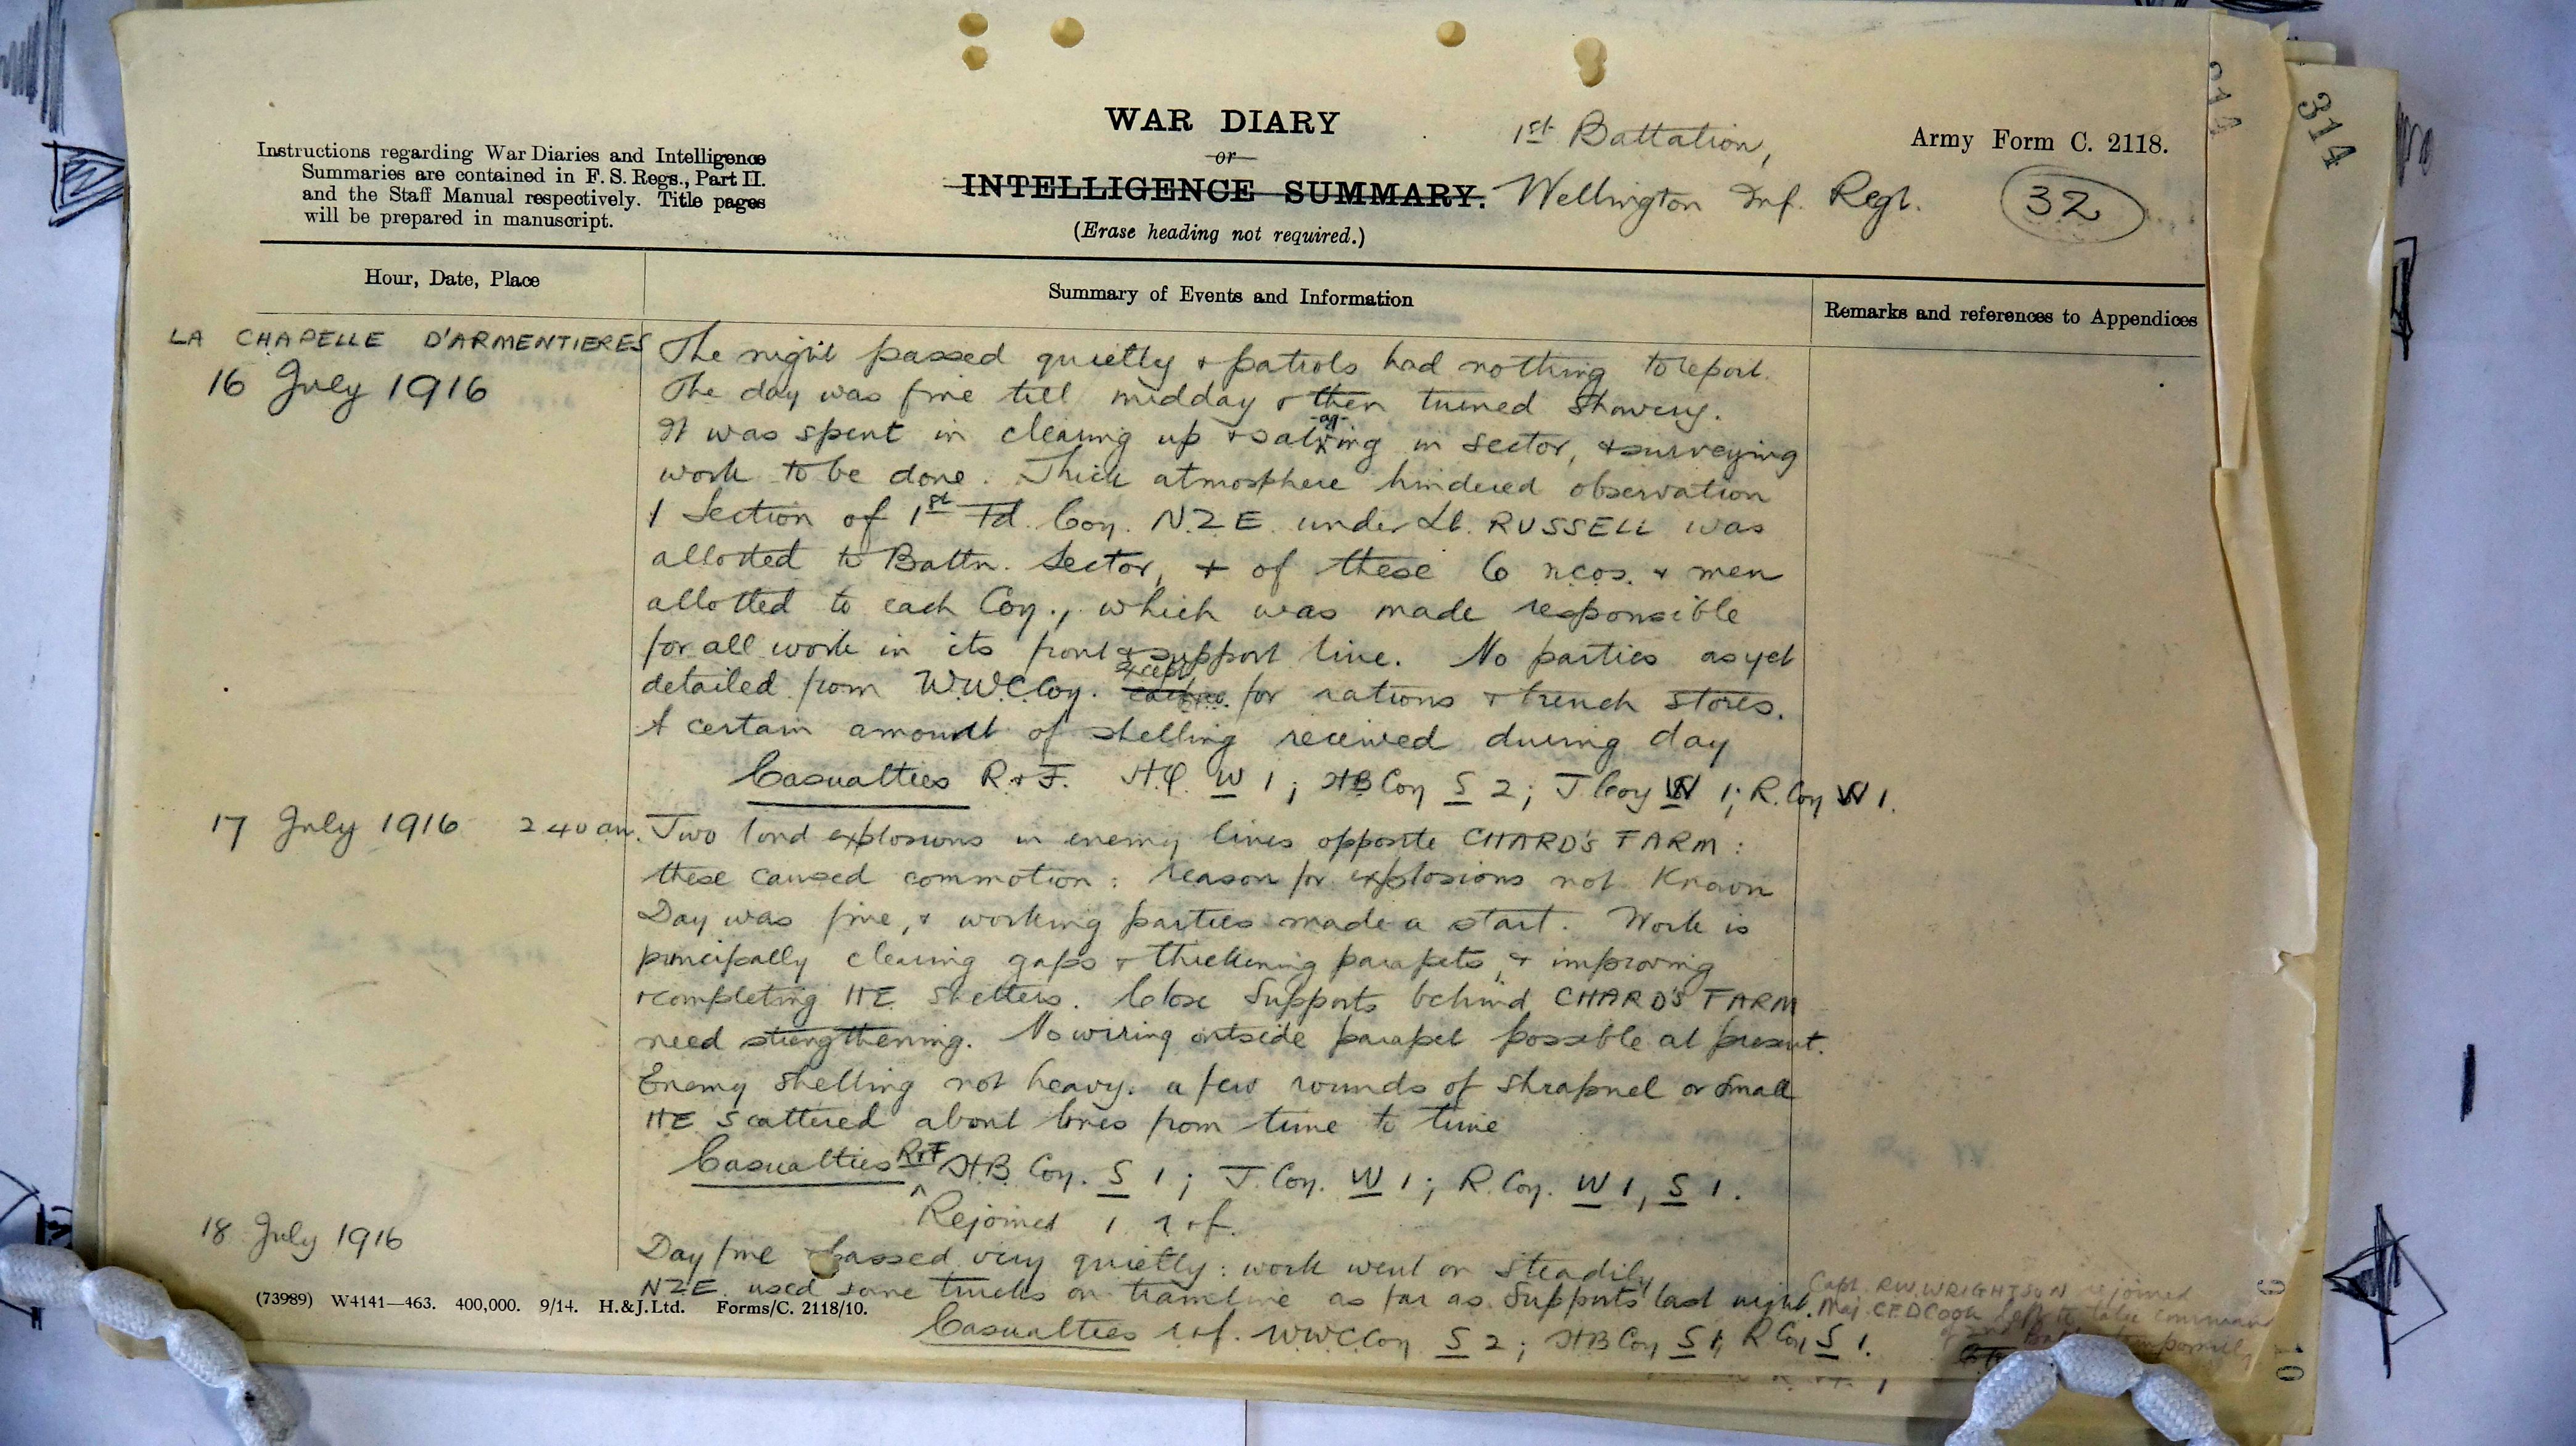 314
WAR DIARY
or
INTELLIGENCE SUMMARY.
(Erase heading not required.)
Instructions regarding War Diaries and Intelligence
Summaries are contained in F. S. Regs., Part II.
and the Staff Manual respectively. Title pages
will be prepared in manuscript.
1st Battation,
Wellington Inf. Regt.
Army Form C. 2118.
32
Hour, Date, Place
Summary of Events and Information
Remarks and references to Appendices
LA CHAPELLE D'ARMENTIERES
16 July 1916
The night passed quietly & patrols had nothing to report.
The day was fine till midday & then turned showery.
It was spent in clearing up & salvaging in sector, & surveying
work to be done. Thick atmosphere hindered observation
1 Section of 1st Fd. Coy. N.Z.E. under Lt. RUSSELL was
allotted to Battn. Sector, + of these 6 ncos. & men
allotted to each Coy., which was made responsible
for all work in its front & support line. No parties as yet
detailed from W.W.C. Coy. except for rations & trench stores.
A certain amount of shelling received during day
Casualties R & F. H.Q. W 1; HB Coy S 2; T. Coy W 1; R. Coy W 1.
17 July 1916 2 40 am.
Two loud explosions in enemy lines opposite CHARD'S FARM:
these caused commotion: reason for explosions not known
Day was fine, & working parties made a start. Work is
principally clearing gaps & thickening parapets, & improving
& completing HE shelters. Close Supports behind CHARD'S FARM
need strengthening. No wiring outside parapet possible at present.
Enemy shelling not heavy. a few rounds of shrapnel or small
HE scattered about lines from time to time
Casualties R & F H.B. Coy. S 1; T. Coy. W 1; R. Coy. W 1, S 1.
Rejoined 1 r & f.
18 July 1916
Day fine & passed very quietly: work went on steadily
NZE. used some trucks on tramline as far as Supports last night.
Casualties r & f. WWC Coy S 2; HB Coy S 1; R Coy S 1.
Capt. R.W. WRIGHTSON rejoined
Maj. C.F.D. Cook left to take command
of 2nd Battn temporarily
(73989) W4141—463. 400,000. 9/14. H.&J.Ltd. Forms/C. 2118/10.